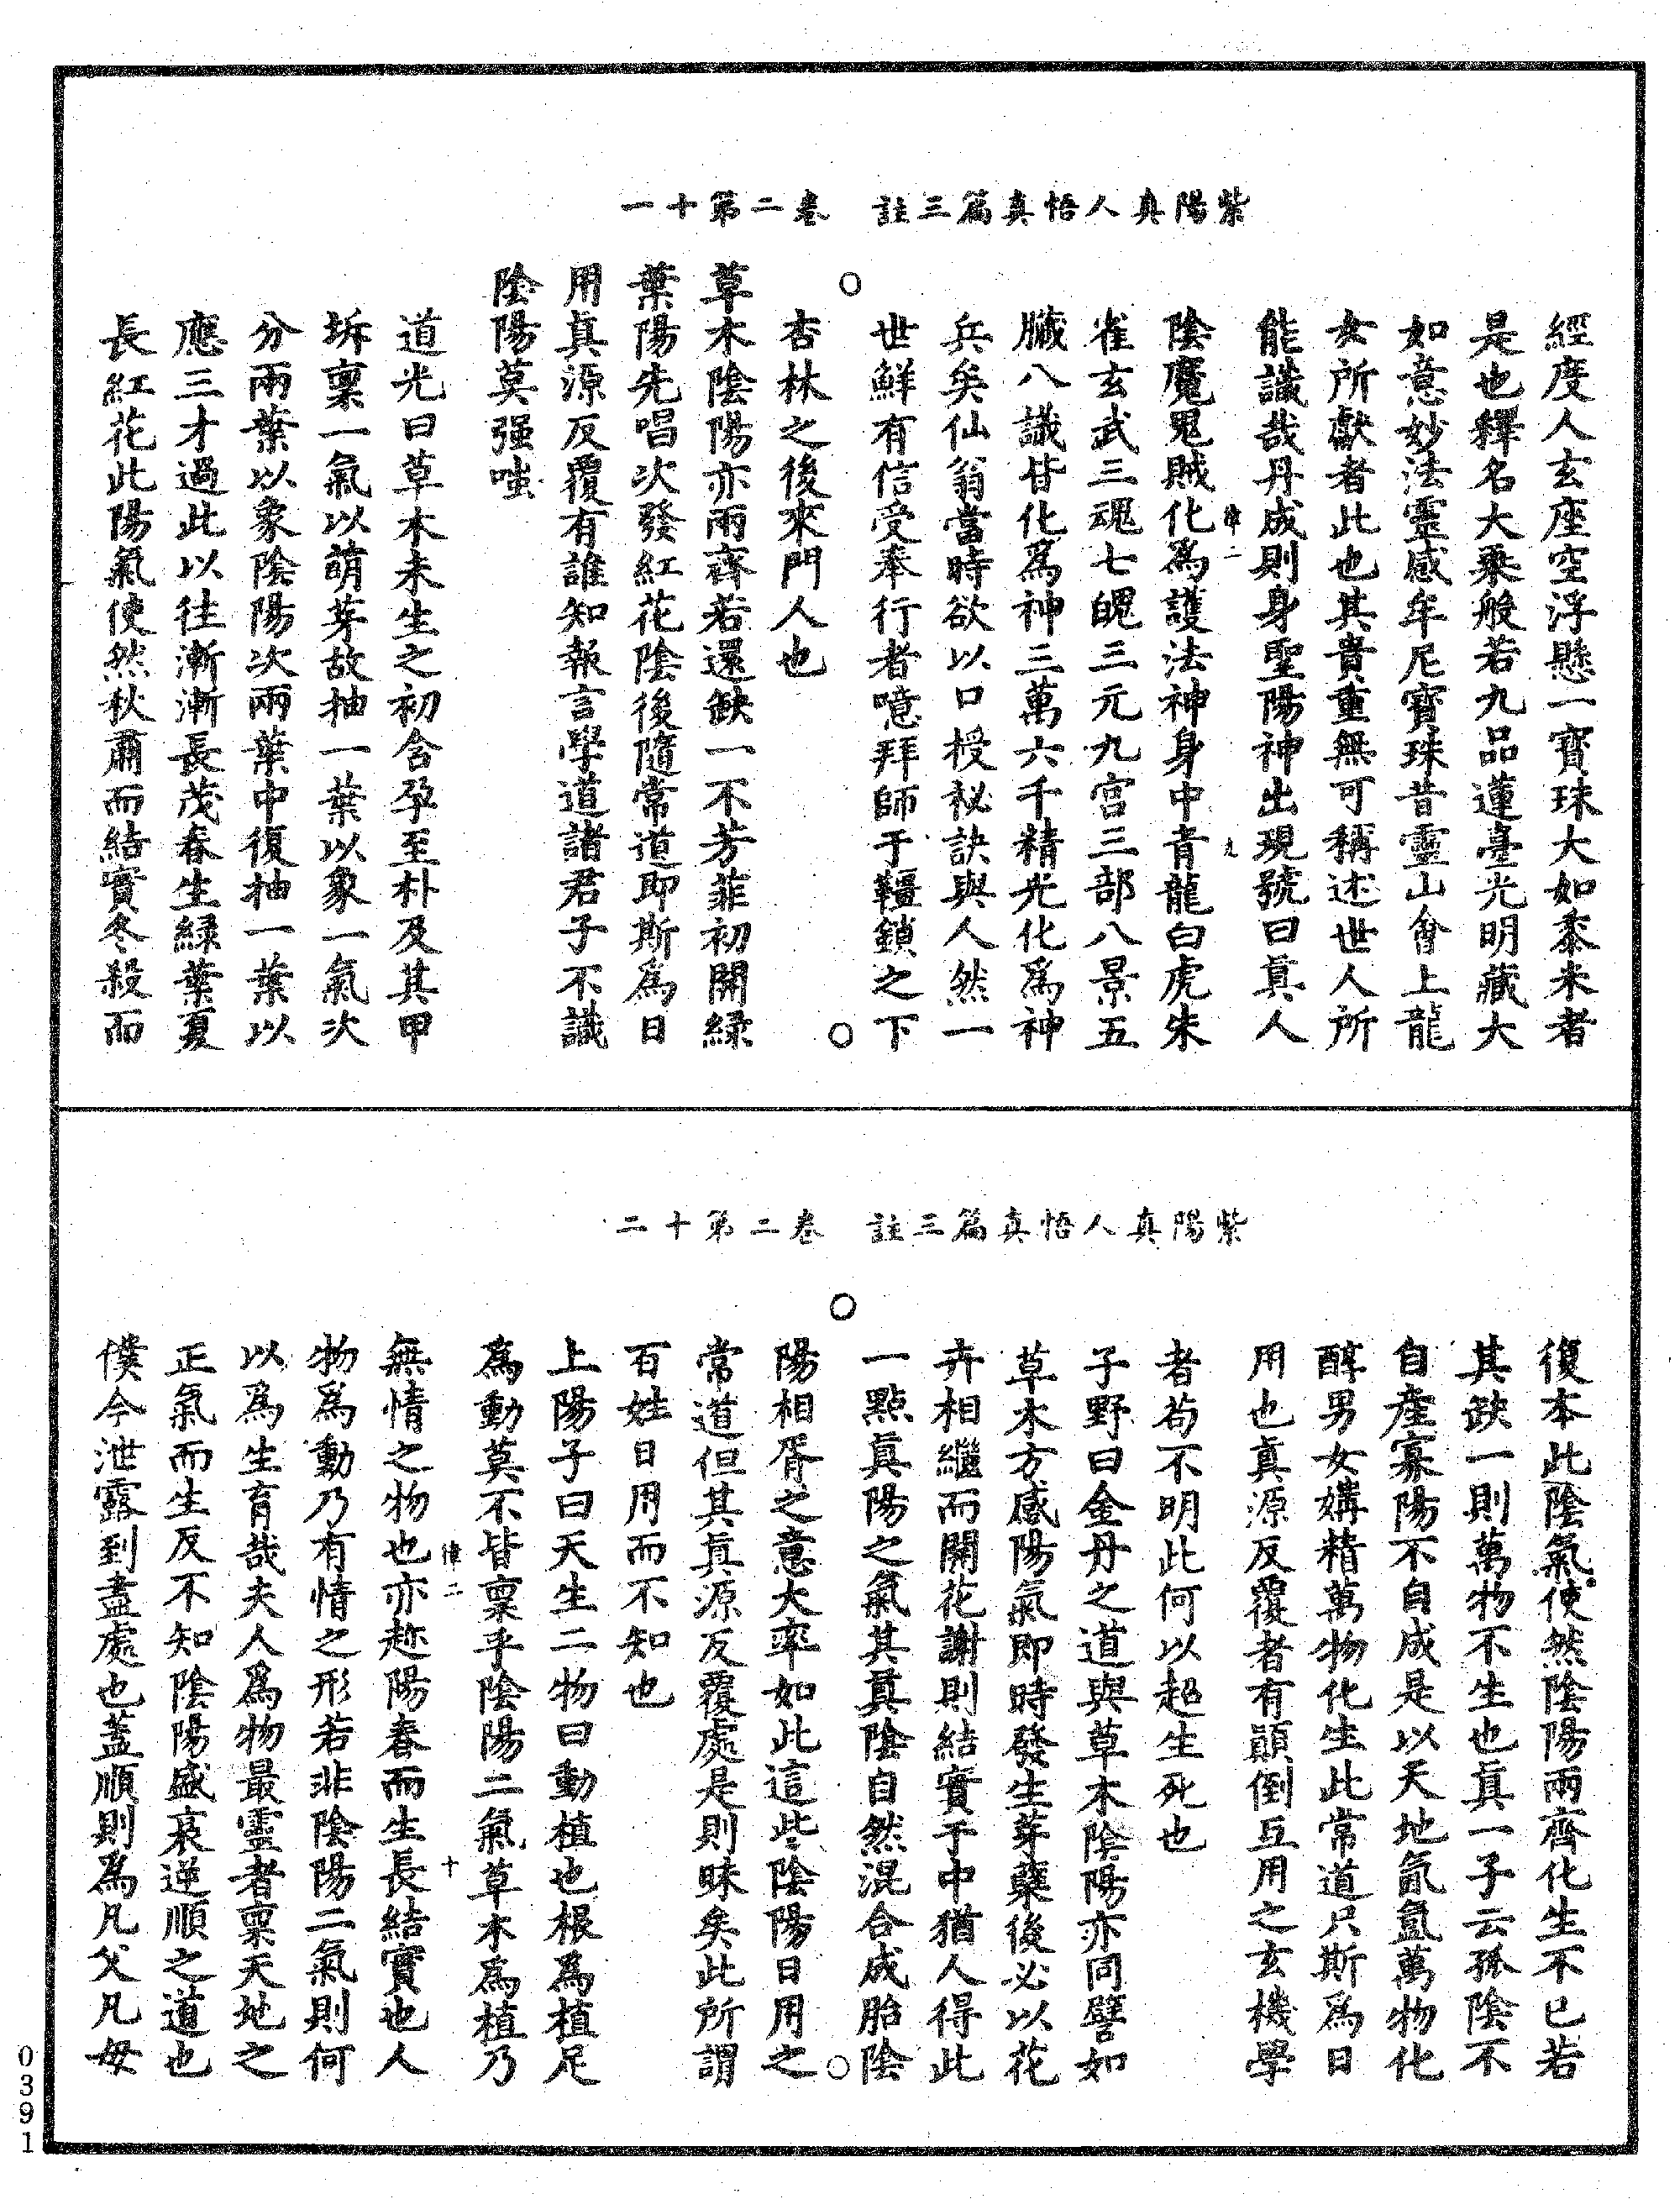 紫陽真人悟真篇三註　卷二第十一
經度人玄座空浮懸一寶珠大如黍米者
是也釋名大乗般若九品蓮臺光明藏大
如意妙法靈感牟尼寶珠昔靈山會上龍
女所獻者此也其貴重無可稱述世人所
能識哉丹成則身聖陽神出現號曰真人
陰魔鬼賊化為護法神身中青龍白虎朱
雀玄武三魂七魄三元九宮三部八景五
臟八識皆化為神三萬六千精光化為神
兵矣仙翁當時欲以口授祕訣與人然一
世鮮有信受奉行者噫拜師于韁鎖之下
○　○
杏林之後來門人也
草木陰陽亦兩齊若還缺一不芳菲初開緑
葉陽先唱次發紅花陰後隨常道即斯為日
用真源反覆有誰知報言學道諸君子不識
陰陽莫强嗤
道光曰草木未生之初含孕至朴及其甲
坼禀一氣以萌芽故抽一葉以象一氣次
分兩葉以象陰陽次兩葉中復抽一葉以
應三才過此以往漸漸長茂春生緑葉夏
長紅花此陽氣使然秋肅而結實冬殺而
紫陽真人悟真篇三註　卷二第十二
復本此陰氣使然陰陽兩齊化生不已若
其缺一則萬物不生也真一子云孤陰不
自産寡陽不自成是以天地氤氳萬物化
醇男女媾精萬物化生此常道只斯為日
用也真源反覆者有顛倒互用之玄機學
者苟不明此何以超生死也
子野曰金丹之道與草木陰陽亦同譬如
草木方感陽氣即時發生芽蘗後必以花
卉相繼而開花謝則結實于中猶人得此
一點真陽之氣其真陰自然混合成胎陰
○　○
陽相胥之意大率如此這些陰陽日用之
常道但其真源反覆處是則昧矣此所謂
百姓日用而不知也
上陽子曰天生二物曰動植也根為植足
為動莫不皆禀乎陰陽二氣草木為植乃
無情之物也亦趂陽春而生長結實也人
物為動乃有情之形若非陰陽二氣則何
以為生育哉夫人為物最靈者禀天地之
正氣而生反不知陰陽盛衰逆順之道也
僕今泄露到盡處也蓋順則為凡父凡母
0391